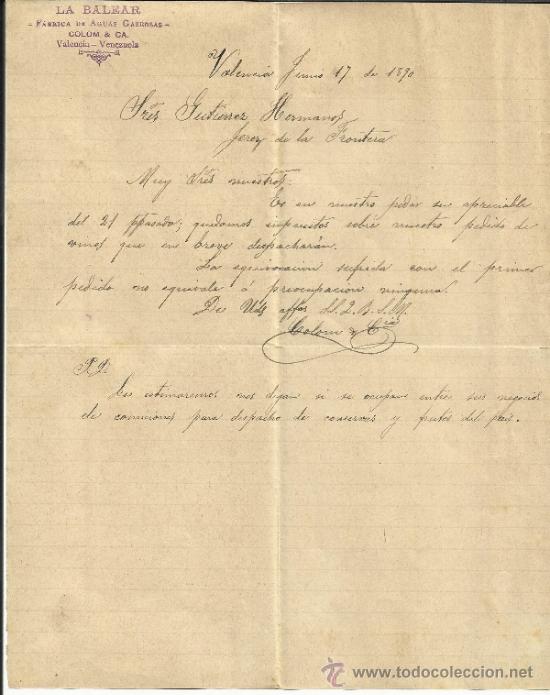 LA BALEAR
- FÁBRICA DE AGUAS GASEOSAS -
COLOM & CA.
Valencia - Venezuela
Valencia Junio 17 de 1890
Sres Gutierrez Hermanos
Jerez de la Frontera
Muy Sres nuestros:
Es en nuestro poder su apreciable
del 21 ppasado; quedamos impuestos sobre nuestro pedido de
vinos que en breve despacharán.
La equivocacion sufrida con el primer
pedido no equivale á preocupacion ninguna.
De Uds affos SS. Q. B. S. M.
Colom & Cia
P. D.
Les estimaremos nos digan si se ocupan entre sus negocios
de comisiones para despacho de conservas y frutos del pais.
todocoleccion
www.todocoleccion.net